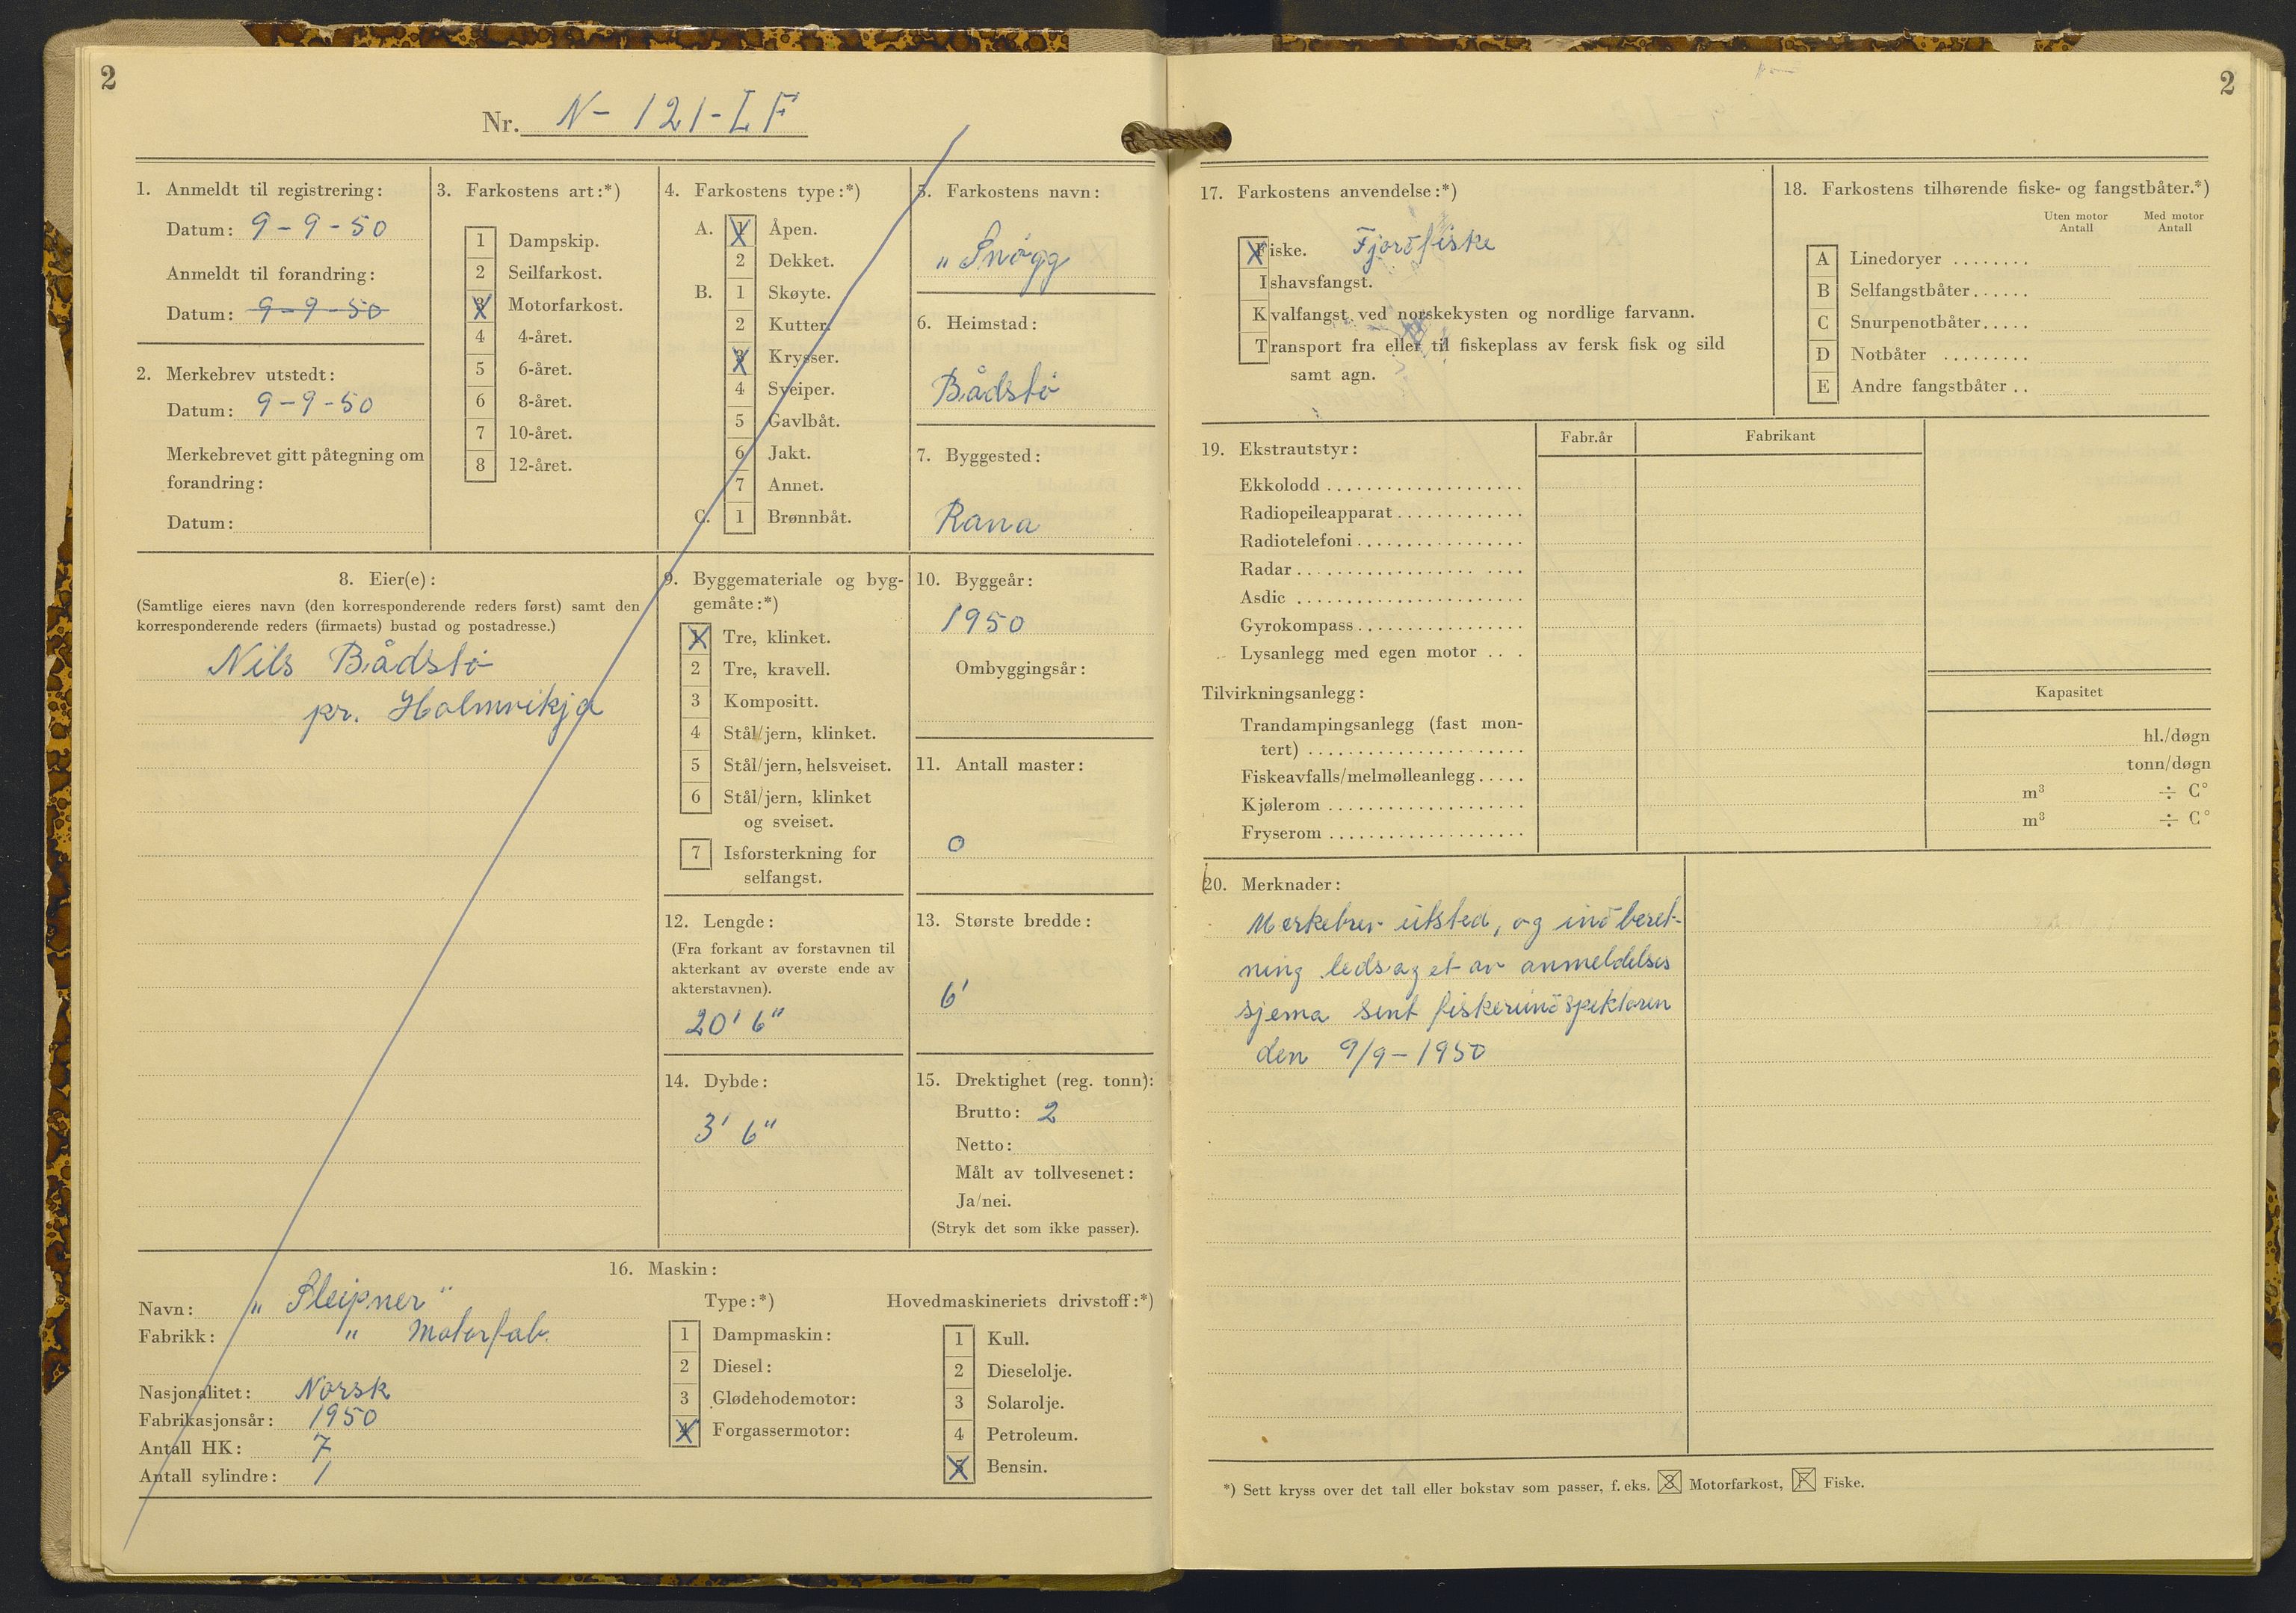 2
Nr. N - 121 - LF
1. Anmeldt til registrering:
Datum: 9 - 9 - 50
Anmeldt til forandring:
Datum: 9 - 9 - 50
2. Merkebrev utstedt:
Datum: 9 - 9 - 50
Merkebrevet gitt påtegning om
forandring:
Datum:
3. Farkostens art:*)
1 Dampskip.
2 Seilfarkost.
3 Motorfarkost.
4 4-året.
5 6-året.
6 8-året.
7 10-året.
8 12-året.
4. Farkostens type:*)
A. 1 Åpen.
2 Dekket.
B. 1 Skøyte.
2 Kutter.
3 Krysser.
4 Sveiper.
5 Gavlbåt.
6 Jakt.
7 Annet.
C. 1 Brønnbåt.
5. Farkostens navn:
" Snögg
6. Heimstad:
Bådstö
7. Byggested:
Rana
8. Eier(e):
(Samtlige eieres navn (den korresponderende reders først) samt den
korresponderende reders (firmaets) bustad og postadresse.)
Nils Bådstö
pr. Holmvikja
9. Byggemateriale og byg-
gemåte:*)
1 Tre, klinket.
2 Tre, kravell.
3 Kompositt.
4 Stål/jern, klinket.
5 Stål/jern, helsveiset.
6 Stål/jern, klinket
og sveiset.
7 Isforsterkning for
selfangst.
10. Byggeår:
1950
Ombyggingsår:
11. Antall master:
0
12. Lengde:
(Fra forkant av forstavnen til
akterkant av øverste ende av
akterstavnen).
20' 6"
13. Største bredde:
6'
14. Dybde:
3' 6"
15. Drektighet (reg. tonn):
Brutto: 2
Netto:
Målt av tollvesenet:
Ja/nei.
(Stryk det som ikke passer).
16. Maskin:
Navn: " Sleipner "
Fabrikk: " Motorfab.
Nasjonalitet: Norsk
Fabrikasjonsår: 1950
Antall HK: 7
Antall sylindre: 1
Type:*)
1 Dampmaskin:
2 Diesel:
3 Glødehodemotor:
4 Forgassermotor:
Hovedmaskineriets drivstoff:*)
1 Kull.
2 Dieselolje.
3 Solarolje.
4 Petroleum.
5 Bensin.
2
17. Farkostens anvendelse:*)
Fiske. Fjordfiske
Ishavsfangst.
Kvalfangst ved norskekysten og nordlige farvann.
Transport fra eller til fiskeplass av fersk fisk og sild
samt agn.
18. Farkostens tilhørende fiske- og fangstbåter.*)
Uten motor Med motor
Antall Antall
A Linedoryer ........
B Selfangstbåter......
C Snurpenotbåter.....
D Notbåter .........
E Andre fangstbåter ..
19. Ekstrautstyr:
Fabr.år Fabrikant
Ekkolodd ....................
Radiopeileapparat .............
Radiotelefoni .................
Radar .......................
Asdic .......................
Gyrokompass .................
Lysanlegg med egen motor ....
Tilvirkningsanlegg:
Kapasitet
Trandampingsanlegg (fast mon-
tert) ...................... hl./døgn
Fiskeavfalls/melmølleanlegg ..... tonn/døgn
Kjølerom .................... m³ ÷ C°
Fryserom .................... m³ ÷ C°
20. Merknader:
Merkebrev utsted, og indberet-
ning ledsaget av anmeldelses
sjema sent fiskeriindspektören
den 9/9 - 1950
*) Sett kryss over det tall eller bokstav som passer, f. eks. 3 Motorfarkost, F Fiske.